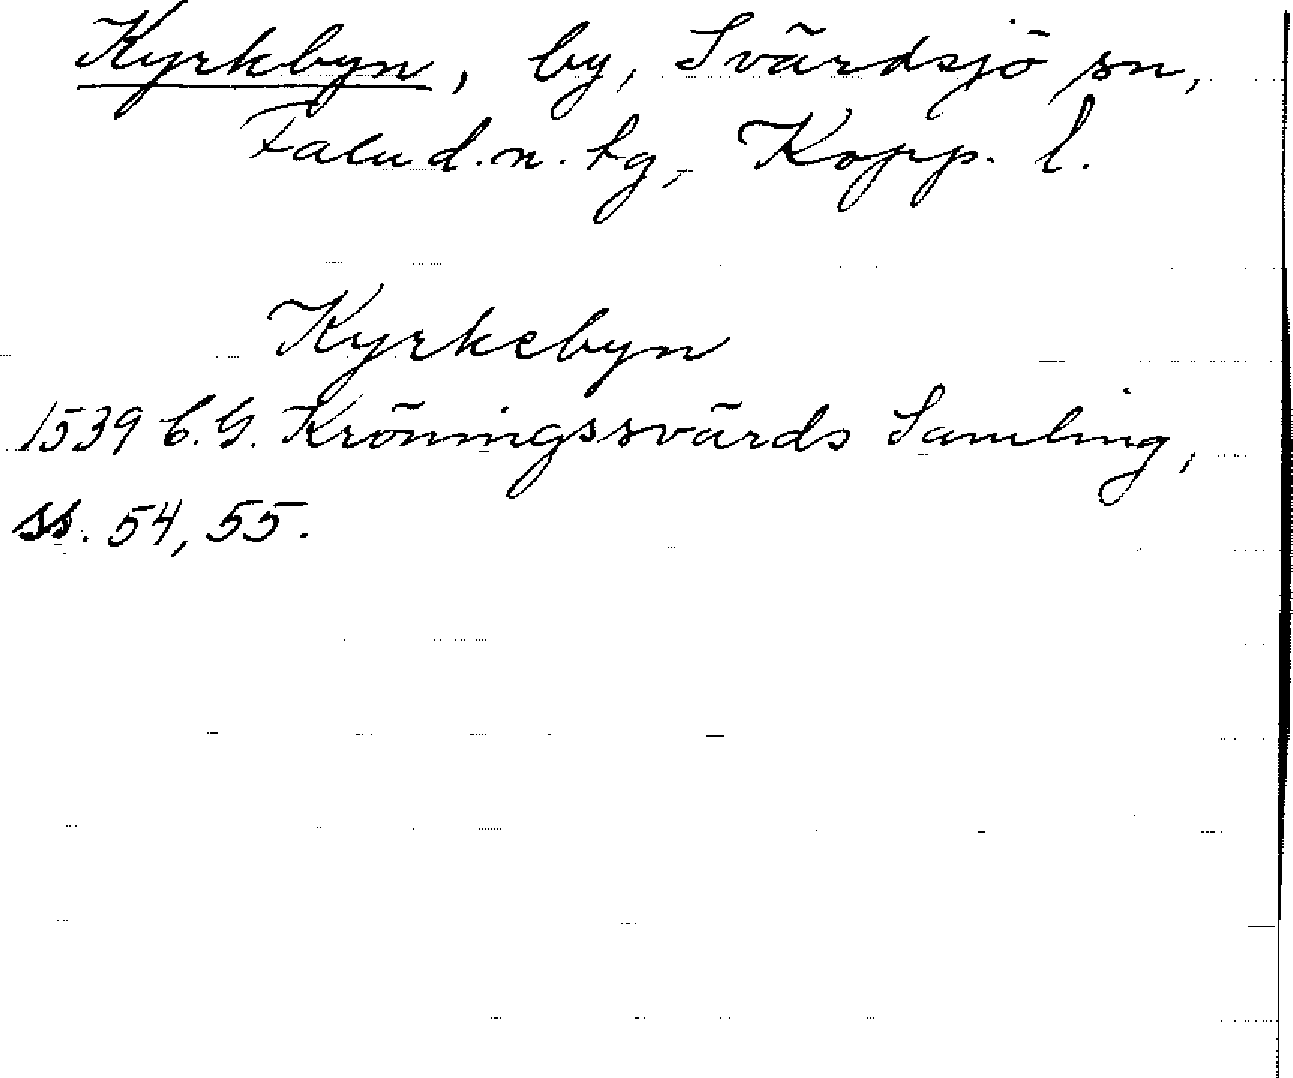 Kyrkbyn, by, Svärdsjö sn,
Falu d.n. tg, Kopp. l.
Kyrkebyn
1539 C.G. Kröningssvärds Samling,
ss. 54, 55.